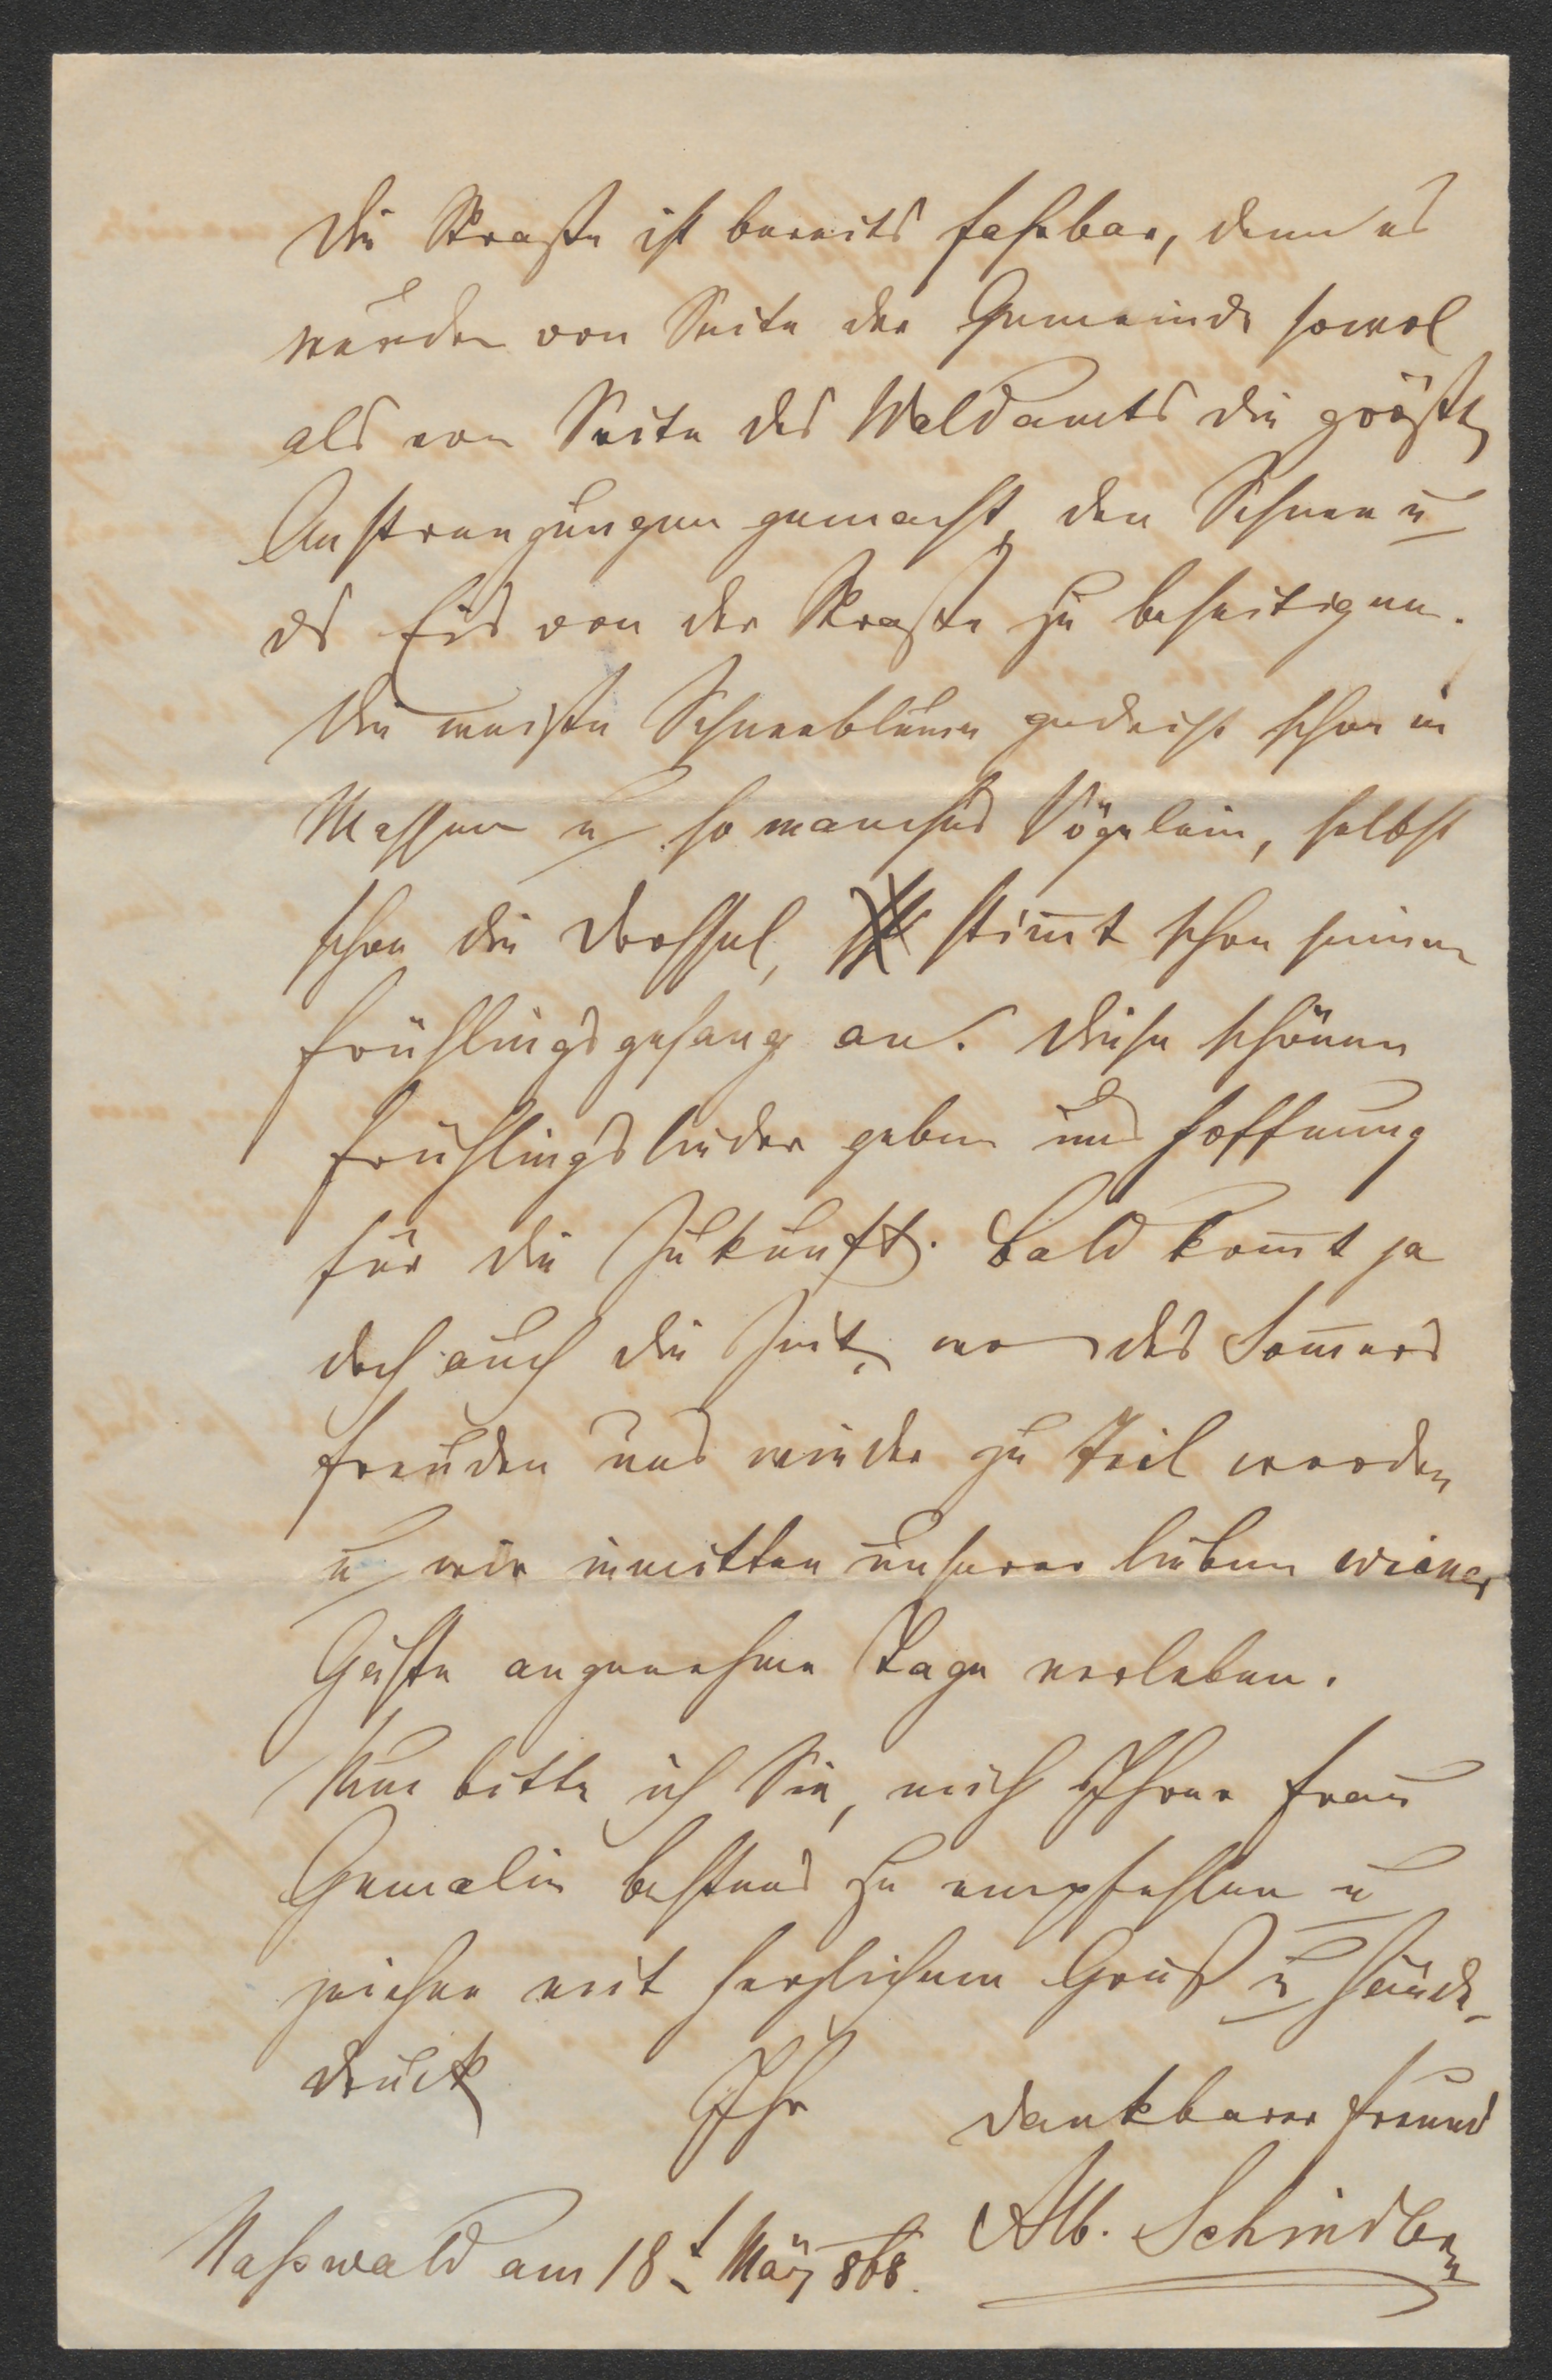 Die Straße ist bereits fahrbar, denn es
wurden von Seite der Gemeinde sowol
als von Seite des Waldamts die größten
Anstrengungen gemacht, den Schnee u
ds Eis von der Straße zu beseitigen.
Die weiße Schneeblume gedeiht schon in
Massen u so manches Vögelein, selbst
schon die Drossel, stim̄t schon seinen
Frühlingsgesang an. Diese schönen
Frühlingslieder geben uns Hoffnung
für die Zukunft. Bald kom̄t ja
doch auch die Zeit, wo des Som̄ers
Freuden uns wieder zu Teil werden
u wir inmitten unserer lieben wiener
Gäste angenehme Tage verleben.
Nun bitte ich Sie, mich Ihrer Frau
Gemalin bestens zu empfehlen u
zeichne mit herzlichem Gruß u Hände-
druck Ihr dankbarer Freund
Alb. Schindler
Naßwald am 18t März 868.